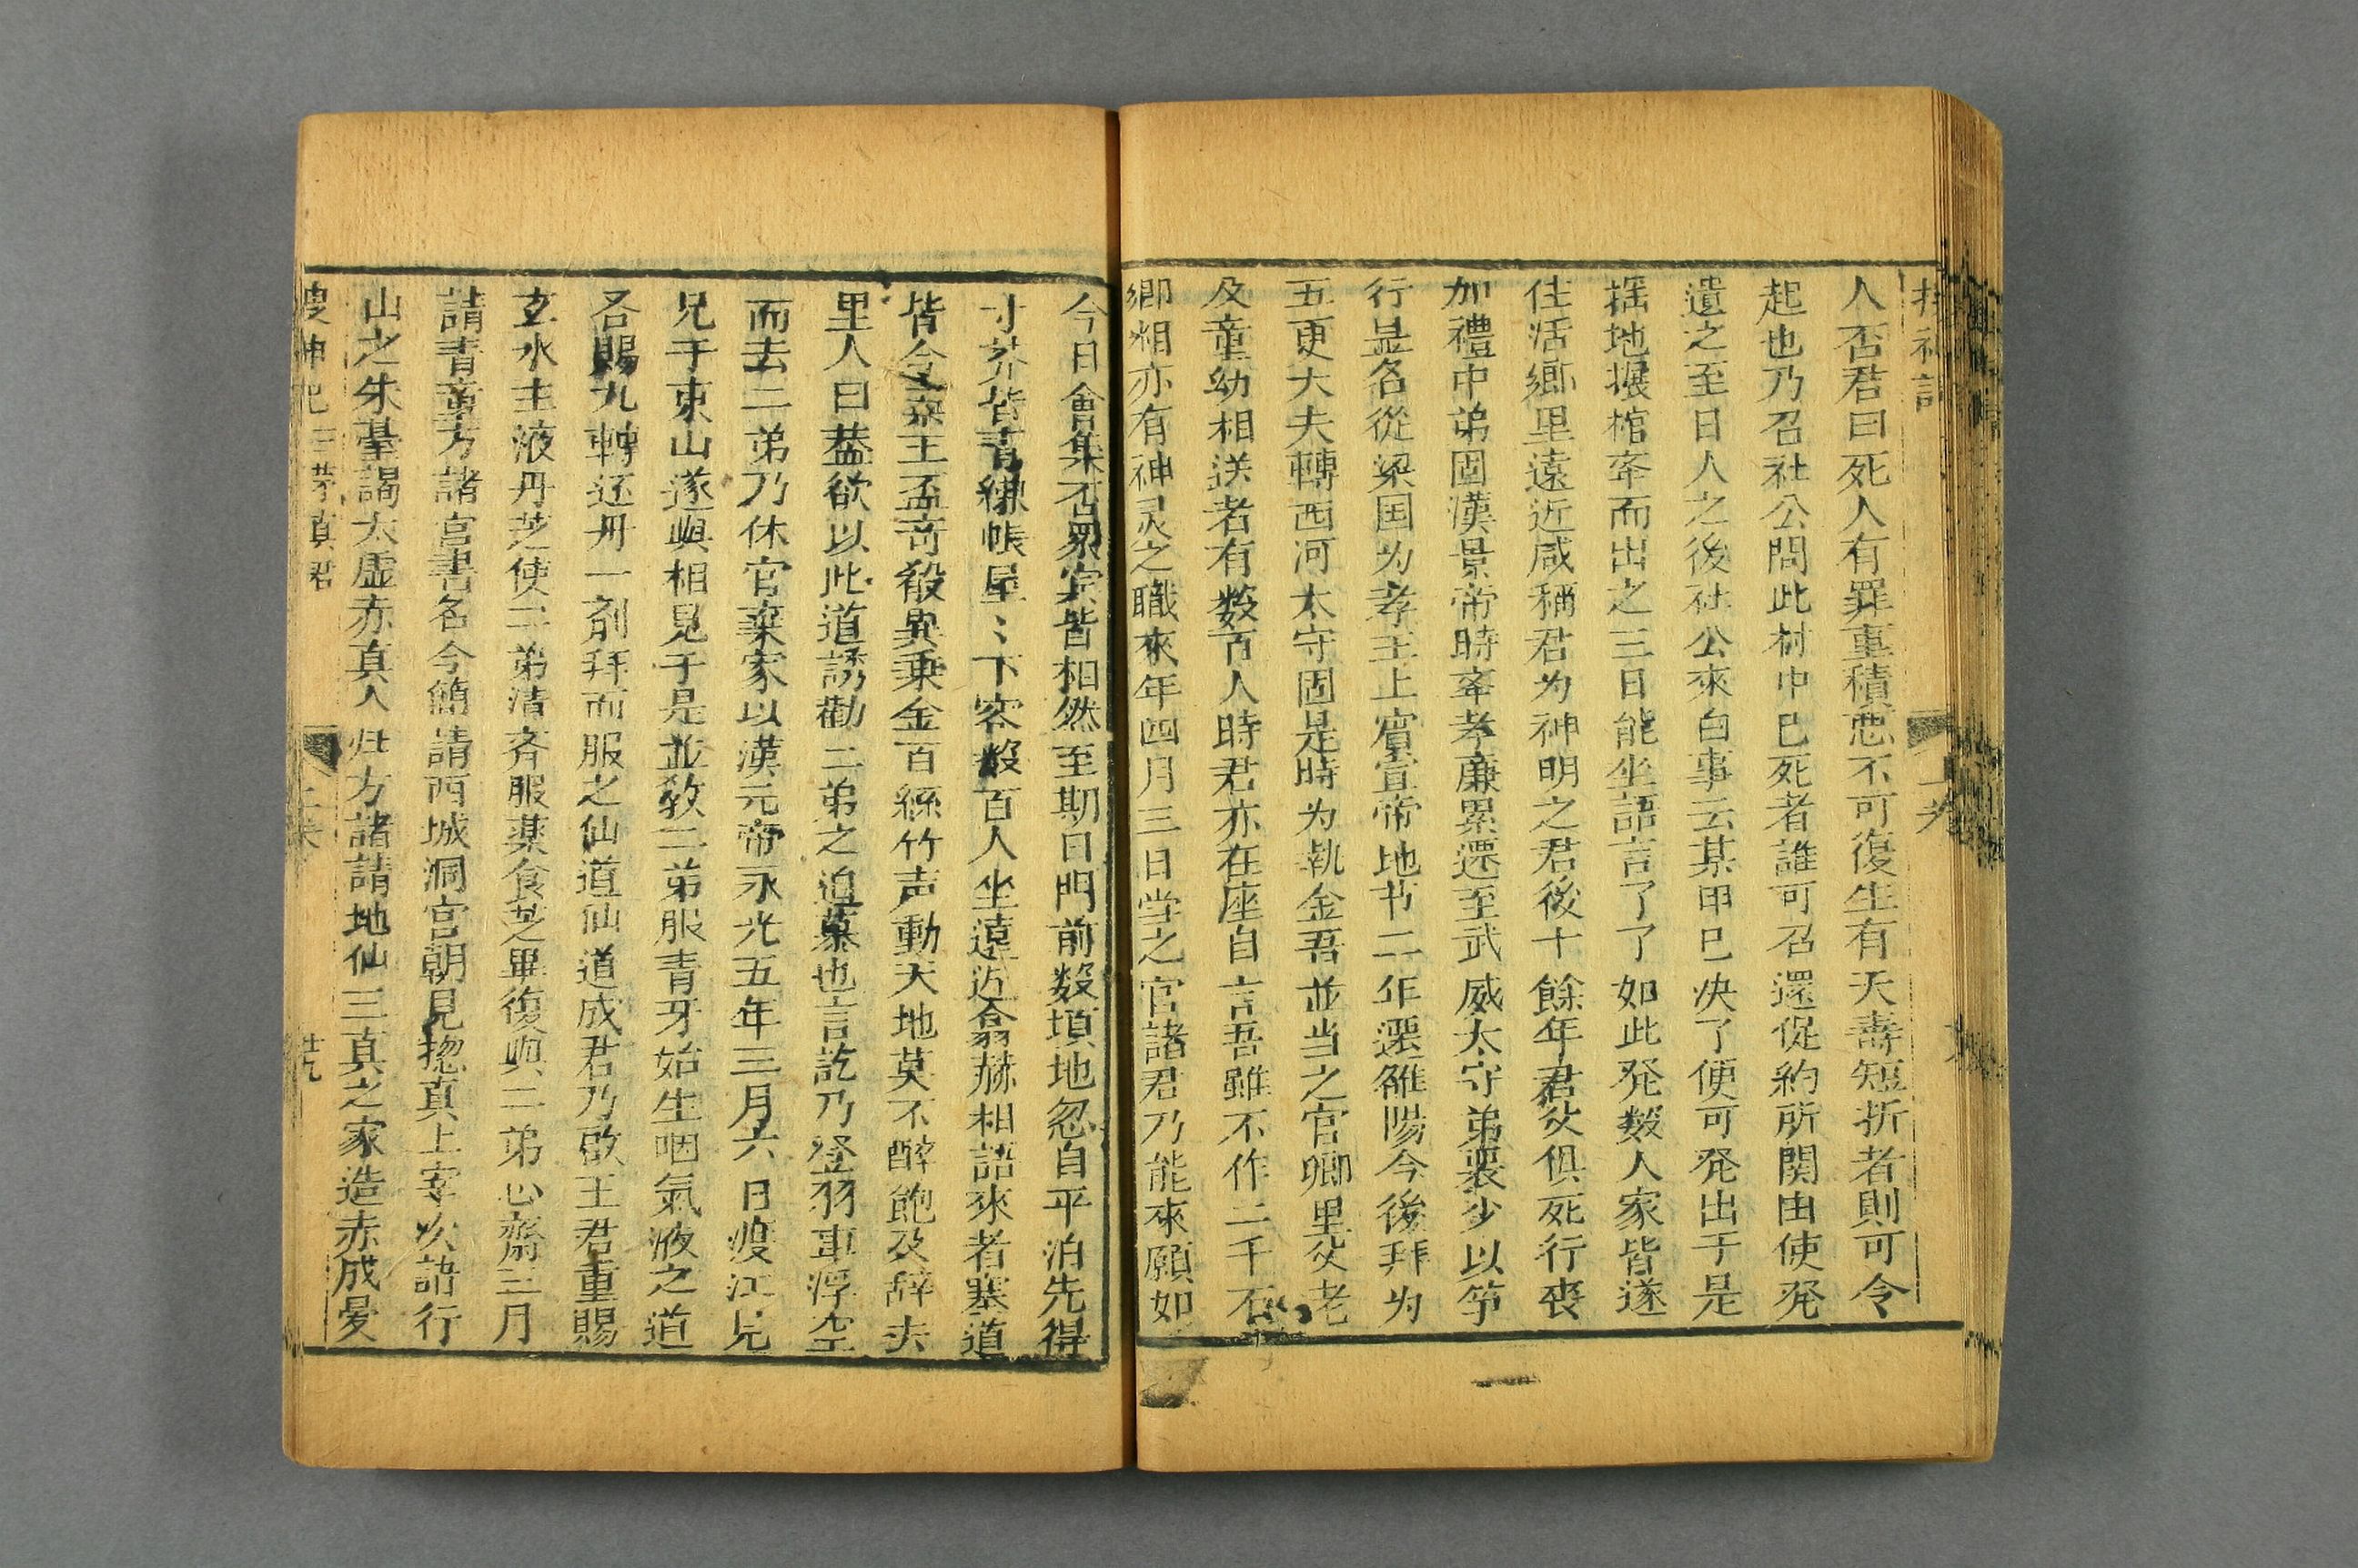 人否君曰死人有罪重積惡不可復生有夭壽短折者則可令
起也乃召社公問此村中已死者誰可召還促約所関由使発
遣之至日人之後社公來白事云某甲已决了便可発出于是
掘地堀棺牵而出之三日能坐語言了了如此発数人家皆遂
住活鄉里遠近咸稱君为神明之君後十餘年君父俱死行喪
加禮中弟固漢景帝時举孝廉累迁至武威太守弟裏少以節
行显名從梁国为孝王上賔宣帝地节二年迁雒陽令後拜为
五更大夫轉西河太守固是時为執金吾並当之官鄉里父老
及童幼相送者有数百人時君亦在座自言吾雖不作二千石
卿相亦有神灵之職來年四月三日当之官諸君乃能來願如
今日會集否眾賓皆相然至期日門前数頃地忽自平泊先得
寸芥皆青縑帳屋〻下容数百人坐遠近翕赫相語來者塞道
皆令 王盃奇殽異乗金百絲竹声動天地莫不醉飽及辞去
里人曰蓋欲以此道誘勸二弟之追慕也言訖乃登羽車浮空
而去二弟乃休官棄家以漢元帝永光五年三月六日渡江見
兄于東山遂與相見于是並教二弟服青牙始生咽氣液之道
各賜九轉还丹一剂拜而服之仙道仙道成君乃啟王君重賜
玄水主液丹芝使二弟清斉服藥食芝畢復與二弟心齋三月
請青童方諸宫書名今簡請西城洞宫朝見揔真上宰次詣行
山之朱臺謁太虛赤真人归方諸請地仙三真之家造赤成晏
搜神記 三茅真君